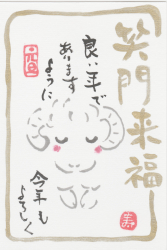 笑門来福
良い年で
あります
ように
今年も
よろしく
寿